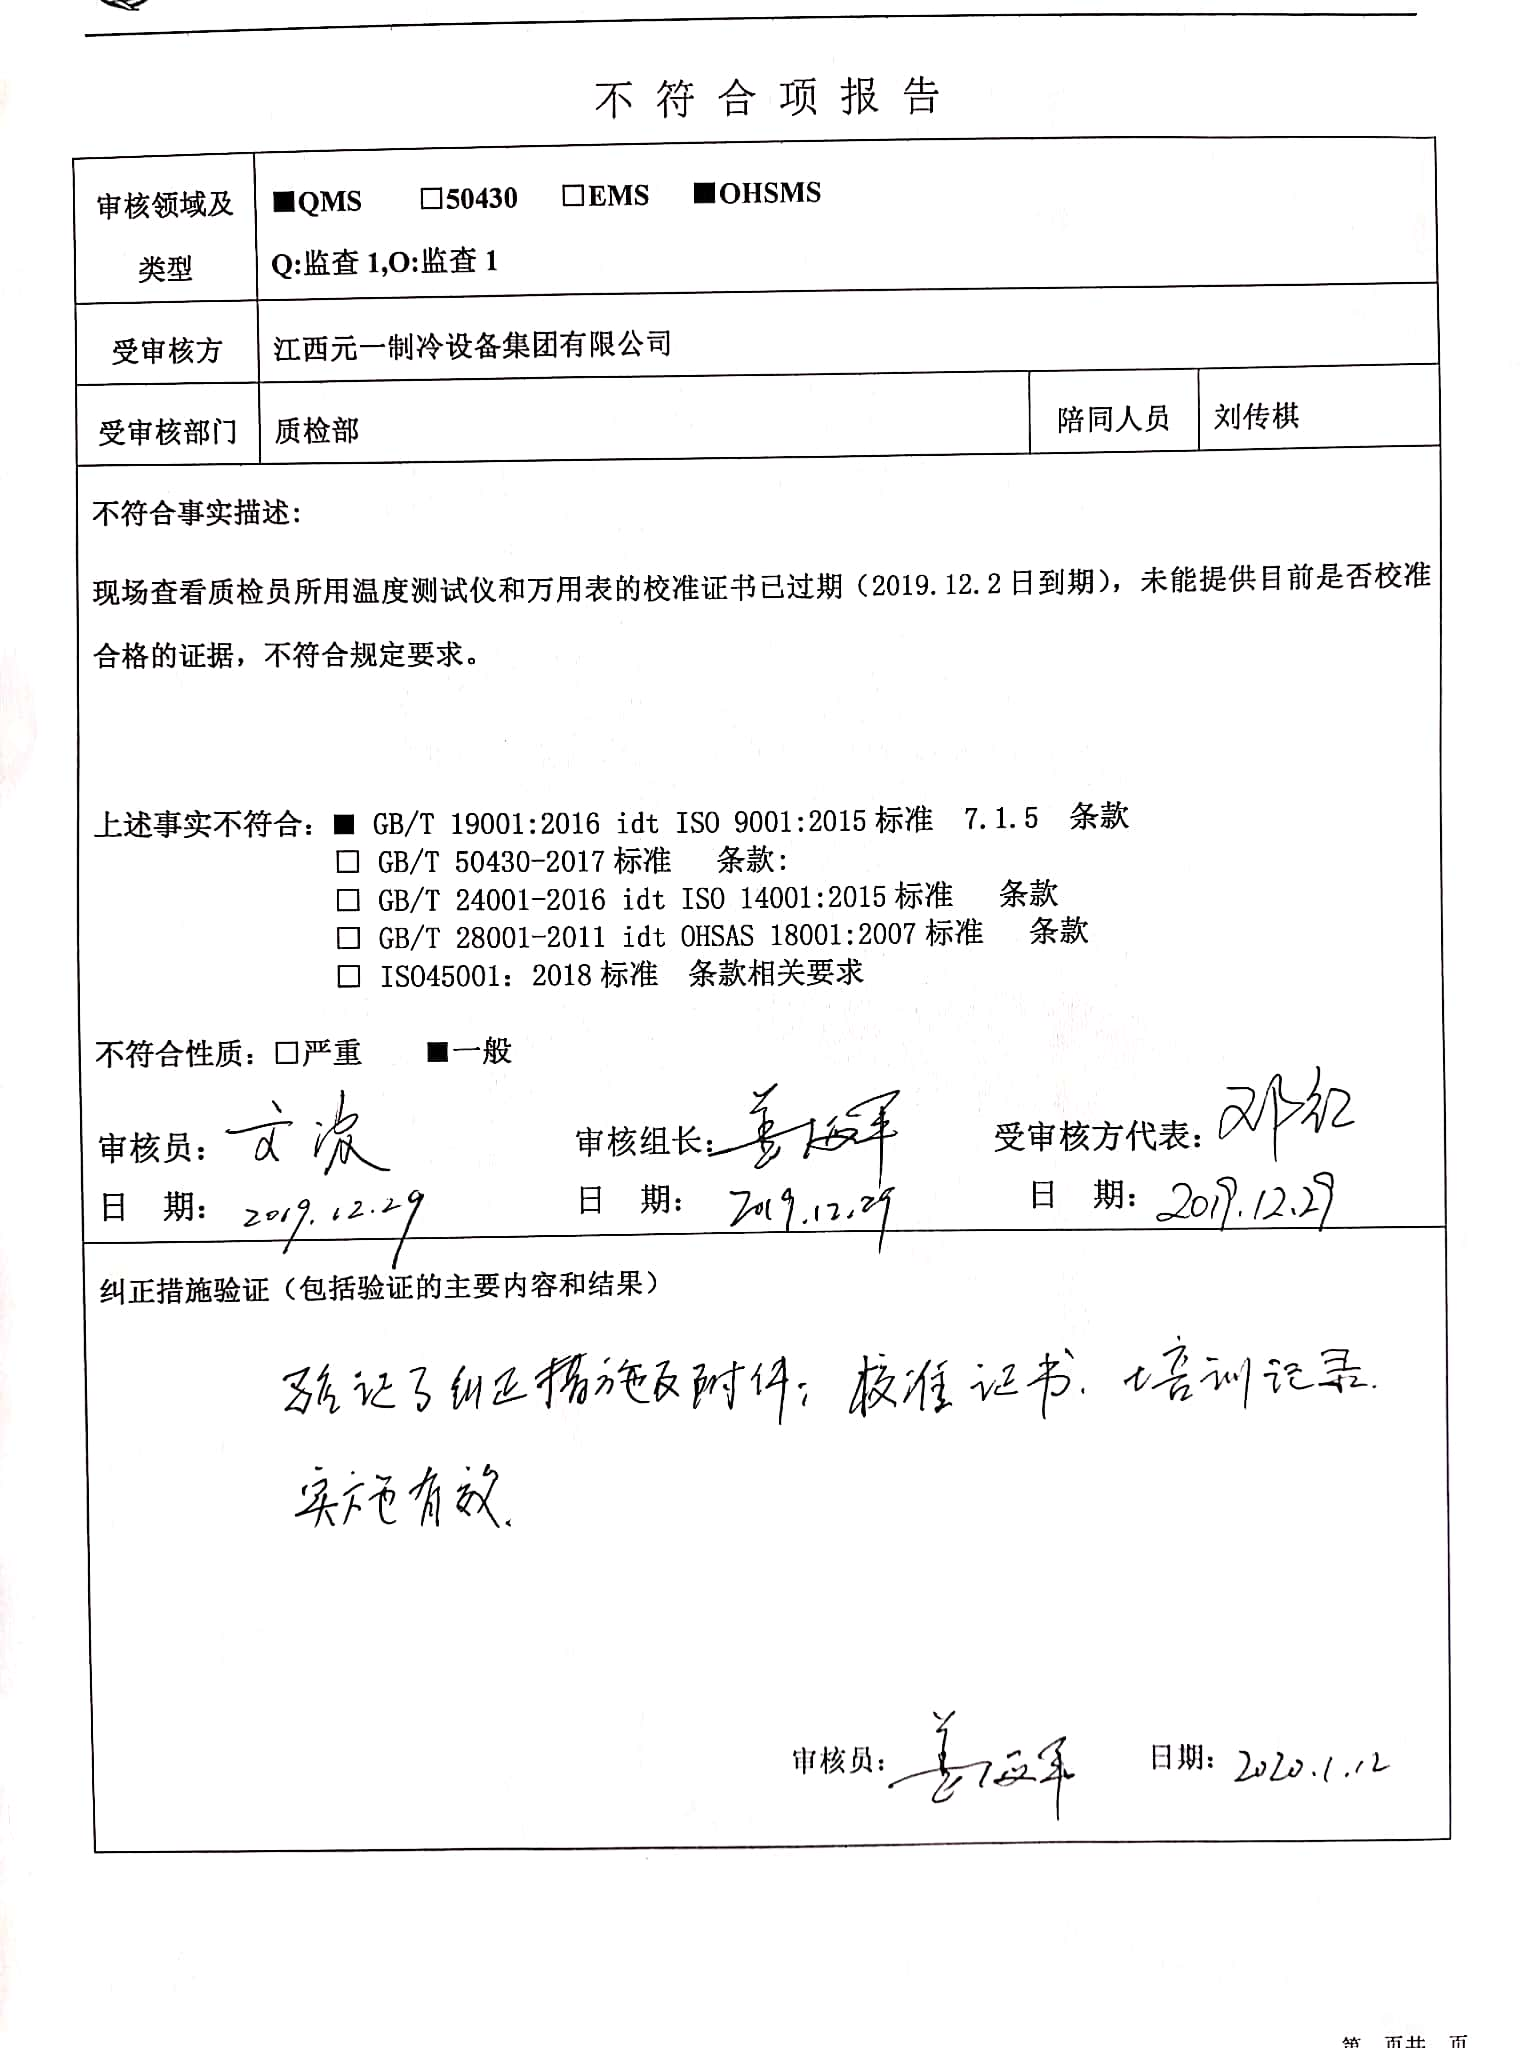 不符合项报告
审核领域及
类型
■QMS □50430 □EMS ■OHSMS
Q:监查 1,O:监查 1
受审核方 江西元一制冷设备集团有限公司
受审核部门 质检部 陪同人员 刘传棋
不符合事实描述:
现场查看质检员所用温度测试仪和万用表的校准证书已过期（2019.12.2日到期），未能提供目前是否校准
合格的证据，不符合规定要求。
上述事实不符合：■ GB/T 19001:2016 idt ISO 9001:2015标准 7.1.5 条款
□ GB/T 50430-2017标准 条款:
□ GB/T 24001-2016 idt ISO 14001:2015标准 条款
□ GB/T 28001-2011 idt OHSAS 18001:2007标准 条款
□ ISO45001：2018标准 条款相关要求
不符合性质：□严重 ■一般
审核员：文波 审核组长：姜海军 受审核方代表：邓红
日 期：2019.12.29 日 期：2019.12.29 日 期：2019.12.29
纠正措施验证（包括验证的主要内容和结果）
验证了纠正措施及附件；校准证书、培训记录.
实施有效.
审核员：姜海军 日期：2020.1.12
第 页共 页